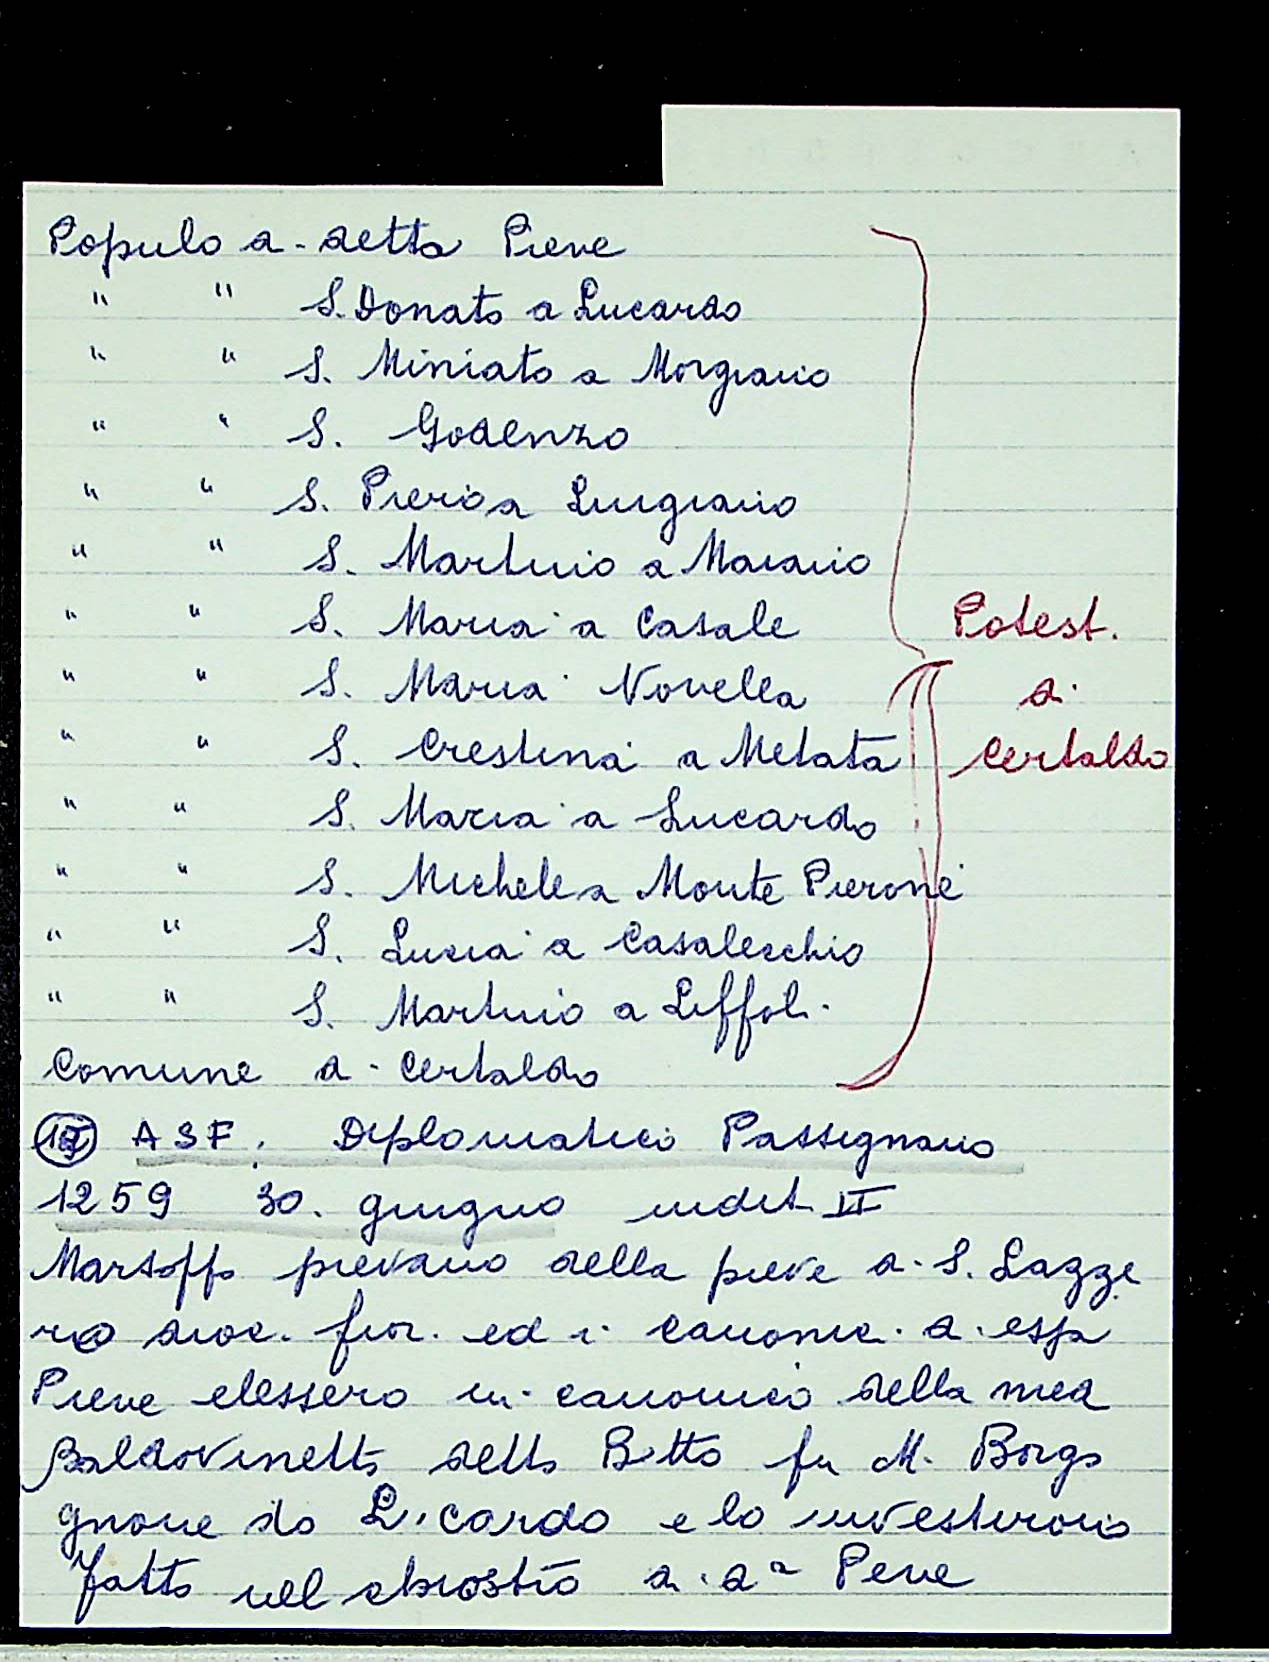 Populo di detta Pieve
" " S. Donato a Lucardo
" " S. Miniato a Morgiano
" " S. Godenzo
" " S. Piero a Lugiano
" " S. Martino a Maiano
" " S. Maria a Casale
" " S. Maria Novella
" " S. Crestina a Metata
" " S. Maria a Lucardo
" " S. Michele a Monte Pierone
" " S. Lucia a Casalecchio
" " S. Martino a Leffoli
Comune di Certaldo
Potest.
di
Certaldo
ASF. Diplomatico Passignano
1259 30. giugno indit II
Martoffo pievano della pieve di S. Lazze
rio dioc. fior. ed i canonic. di essa
Pieve elessero in canonico della med
Baldovinetto detto Bitto fu M. Borgo
gnone da Licardo e lo investirono
fatto nel chiostro di da Pieve